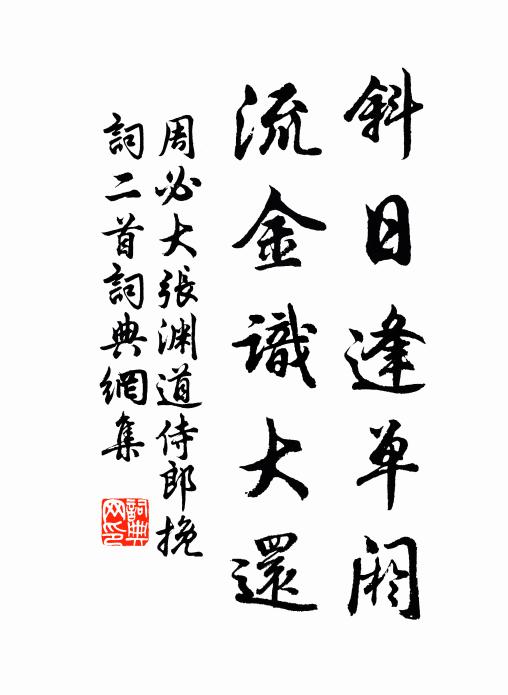 斜日逢单阏
流金識大還
周必大張渊道侍郎挽
詞二首詞典網集
詞典
网印